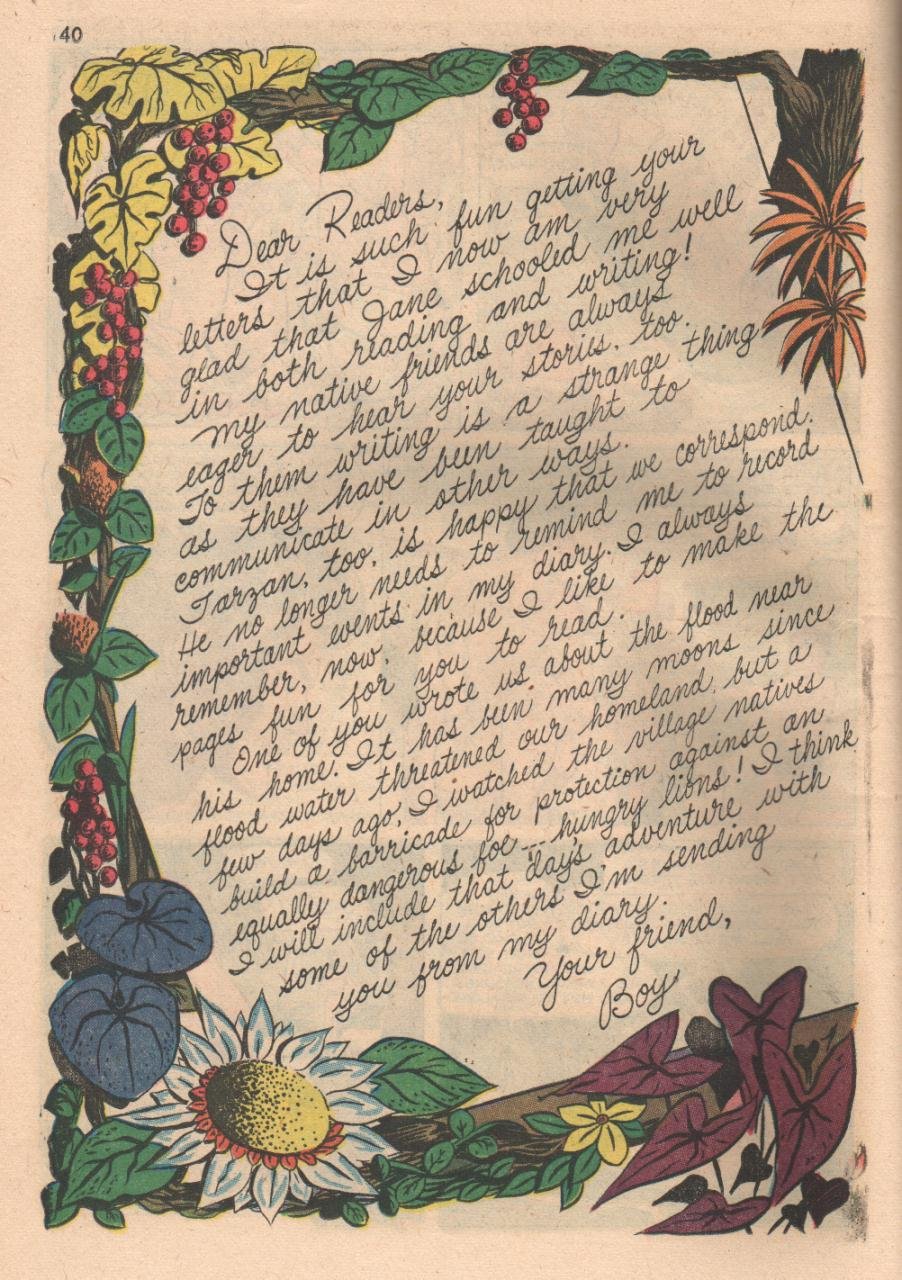 40
Dear Readers,
It is such fun getting your
letters that I now am very
glad that Jane schooled me well
in both reading and writing!
My native friends are always
eager to hear your stories, too.
To them writing is a strange thing
as they have been taught to
communicate in other ways.
Tarzan, too, is happy that we correspond.
He no longer needs to remind me to record
important events in my diary. I always
remember, now, because I like to make the
pages fun for you to read.
One of you wrote us about the flood near
his home. It has been many moons since
flood water threatened our homeland, but a
few days ago, I watched the village natives
build a barricade for protection against an
equally dangerous foe---hungry lions! I think
I will include that day's adventure with
some of the others I'm sending
you from my diary.
Your friend,
Boy